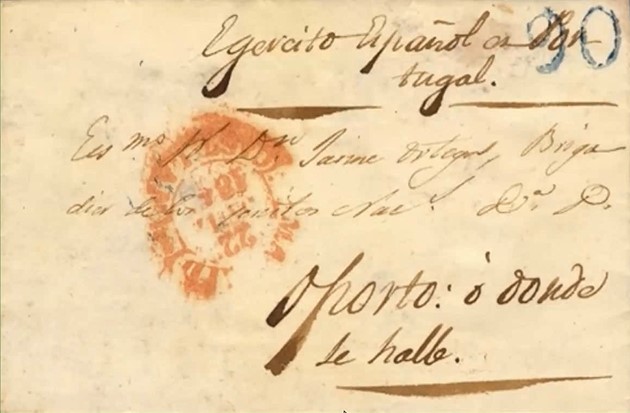 Egercito Español en Por
tugal.
90
Ecs.mo Sr. Dn. Jaime Ortega, Briga
dier de los Nac.s
Oporto: ó donde
se halle.